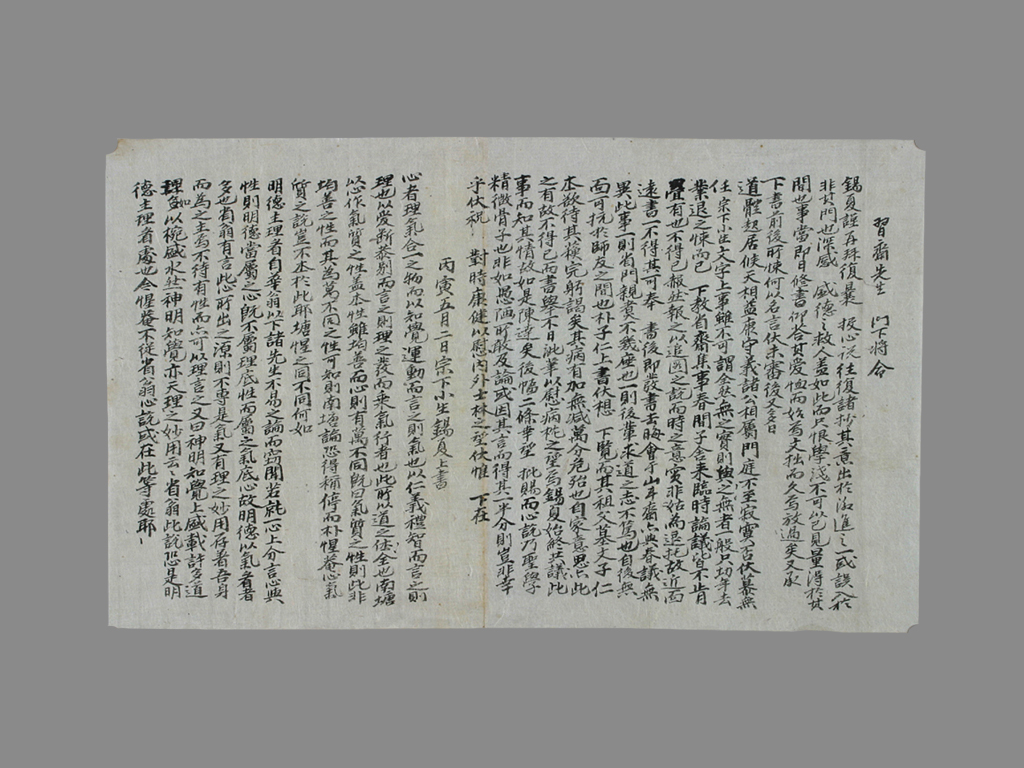 習齋先生 門下將命
錫夏謹再拜復曩 投心說往復諸抄其意出於汲進之一或誤入於
非其門也深感 盛德之救人蓋如此而只恨學淺不可以已見量得於其
間也事當卽日修書仰答其愛恤而始焉文拙而久焉放過矣又承
下書前後所悚何以名言伏未審後又多日
道體起居候天相益康守義諸公相屬門庭不至寂寞否伏慕無
任宗下小生文字上事雖不可謂全然無之實則與之無者一般只切年去
業退之悚而已 下敎省齋集事春間子金來臨時論議皆不止肯
疊有也不得已敝然報之以追圖之說而時之意實非姑爲退托故近面
遠書一不得其可奉 書後卽發書去晦會于山斗齋亦與參議無
異此事一則省門親炙不幾座也一則後輩求道之志不篤也自後無
面可抗於師友之間也朴子仁上書伏想 下覽而其祖文墓文子仁
本欲待其模完躬謁矣其病有加無減萬分危殆也自家意思亦此
之有故不得已而書擧不日泚筆以慰病枕之望焉錫夏始終共議此
事而知其情故如是陳達矣後幅二條幸望 批賜而心說乃聖學
精微骨子也非如愚陋所敢及論或因其言而得其一半分則豈非幸
乎伏祝 對時康健以慰內外士林之望伏惟 下在
丙寅五月二日宗下小生錫夏上書
心者理氣合一之物而以知覺運動而言之則氣也以仁義禮智而言之則
理也以愛斷恭別而言之則理之發而乘氣行者也此所以道之体全也南塘
以心作氣質之性蓋本性雖均善而心則有萬不同旣曰氣質之性則此非
均善之性而其爲萬不同之性可知則南塘論恐得稱停而朴惺菴心氣
質之說豈不本於此耶塘惺之同不同何如
明德主理者自華翁以下諸先生不易之論而窃聞若就心上分言心與
性則明德當屬之心旣不屬理底性而屬之氣底心故明德以氣看者
多也省翁有言此心所出之源則不專是氣又有理之妙用存着吾身
而爲之主焉不待有性而亦可以理言之又曰神明知覺上盛載許多道
理如以椀盛水然神明知覺亦天理之妙用云云省翁此說恐是明
德主理看處也今惺菴不從省翁心說或在此等處耶